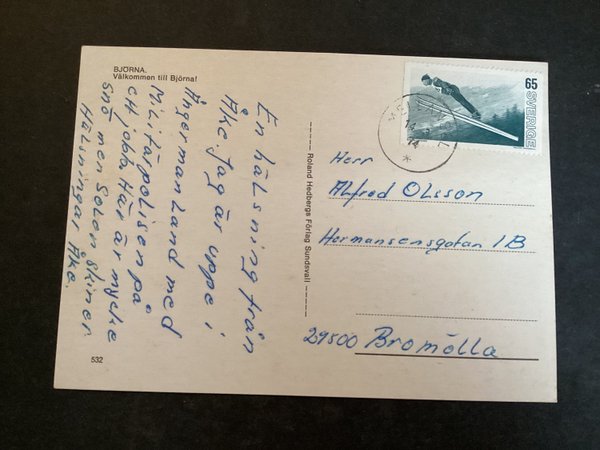 BJÖRNA.
Välkommen till Björna!
En hälsning från
Åke. Jag är uppe i
Ångermanland med
Militärpolisen på
ett jobb. Här är mycke
snö men Solen skiner.
Hälsningar Åke.
532
Roland Hedbergs Förlag Sundsvall
65
SVERIGE
Herr
Alfred Olsson
Hermansensgatan 1B
29500 Bromölla